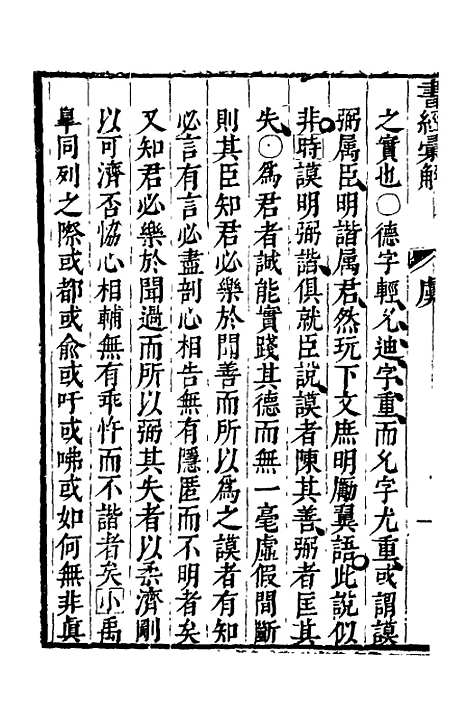 書經彙解 虞
之實也○德字輕允迪字重而允字尤重或謂謨
弼属臣明諧属君然玩下文庶明勵翼語此說似
非時謨明弼諧俱就臣說謨者陳其善弼者匡其
失○爲君者誠能實踐其德而無一毫虛假間斷
則其臣知君必樂於聞善而所以爲之謨者有知
必言有言必盡剖心相告無有隱匿而不明者矣
又知君必樂於聞過而所以弼其失者以柔濟剛
以可濟否恊心相輔無有乖忤而不諧者矣小禹
皐同列之際或都或兪或吁或咈或如何無非眞